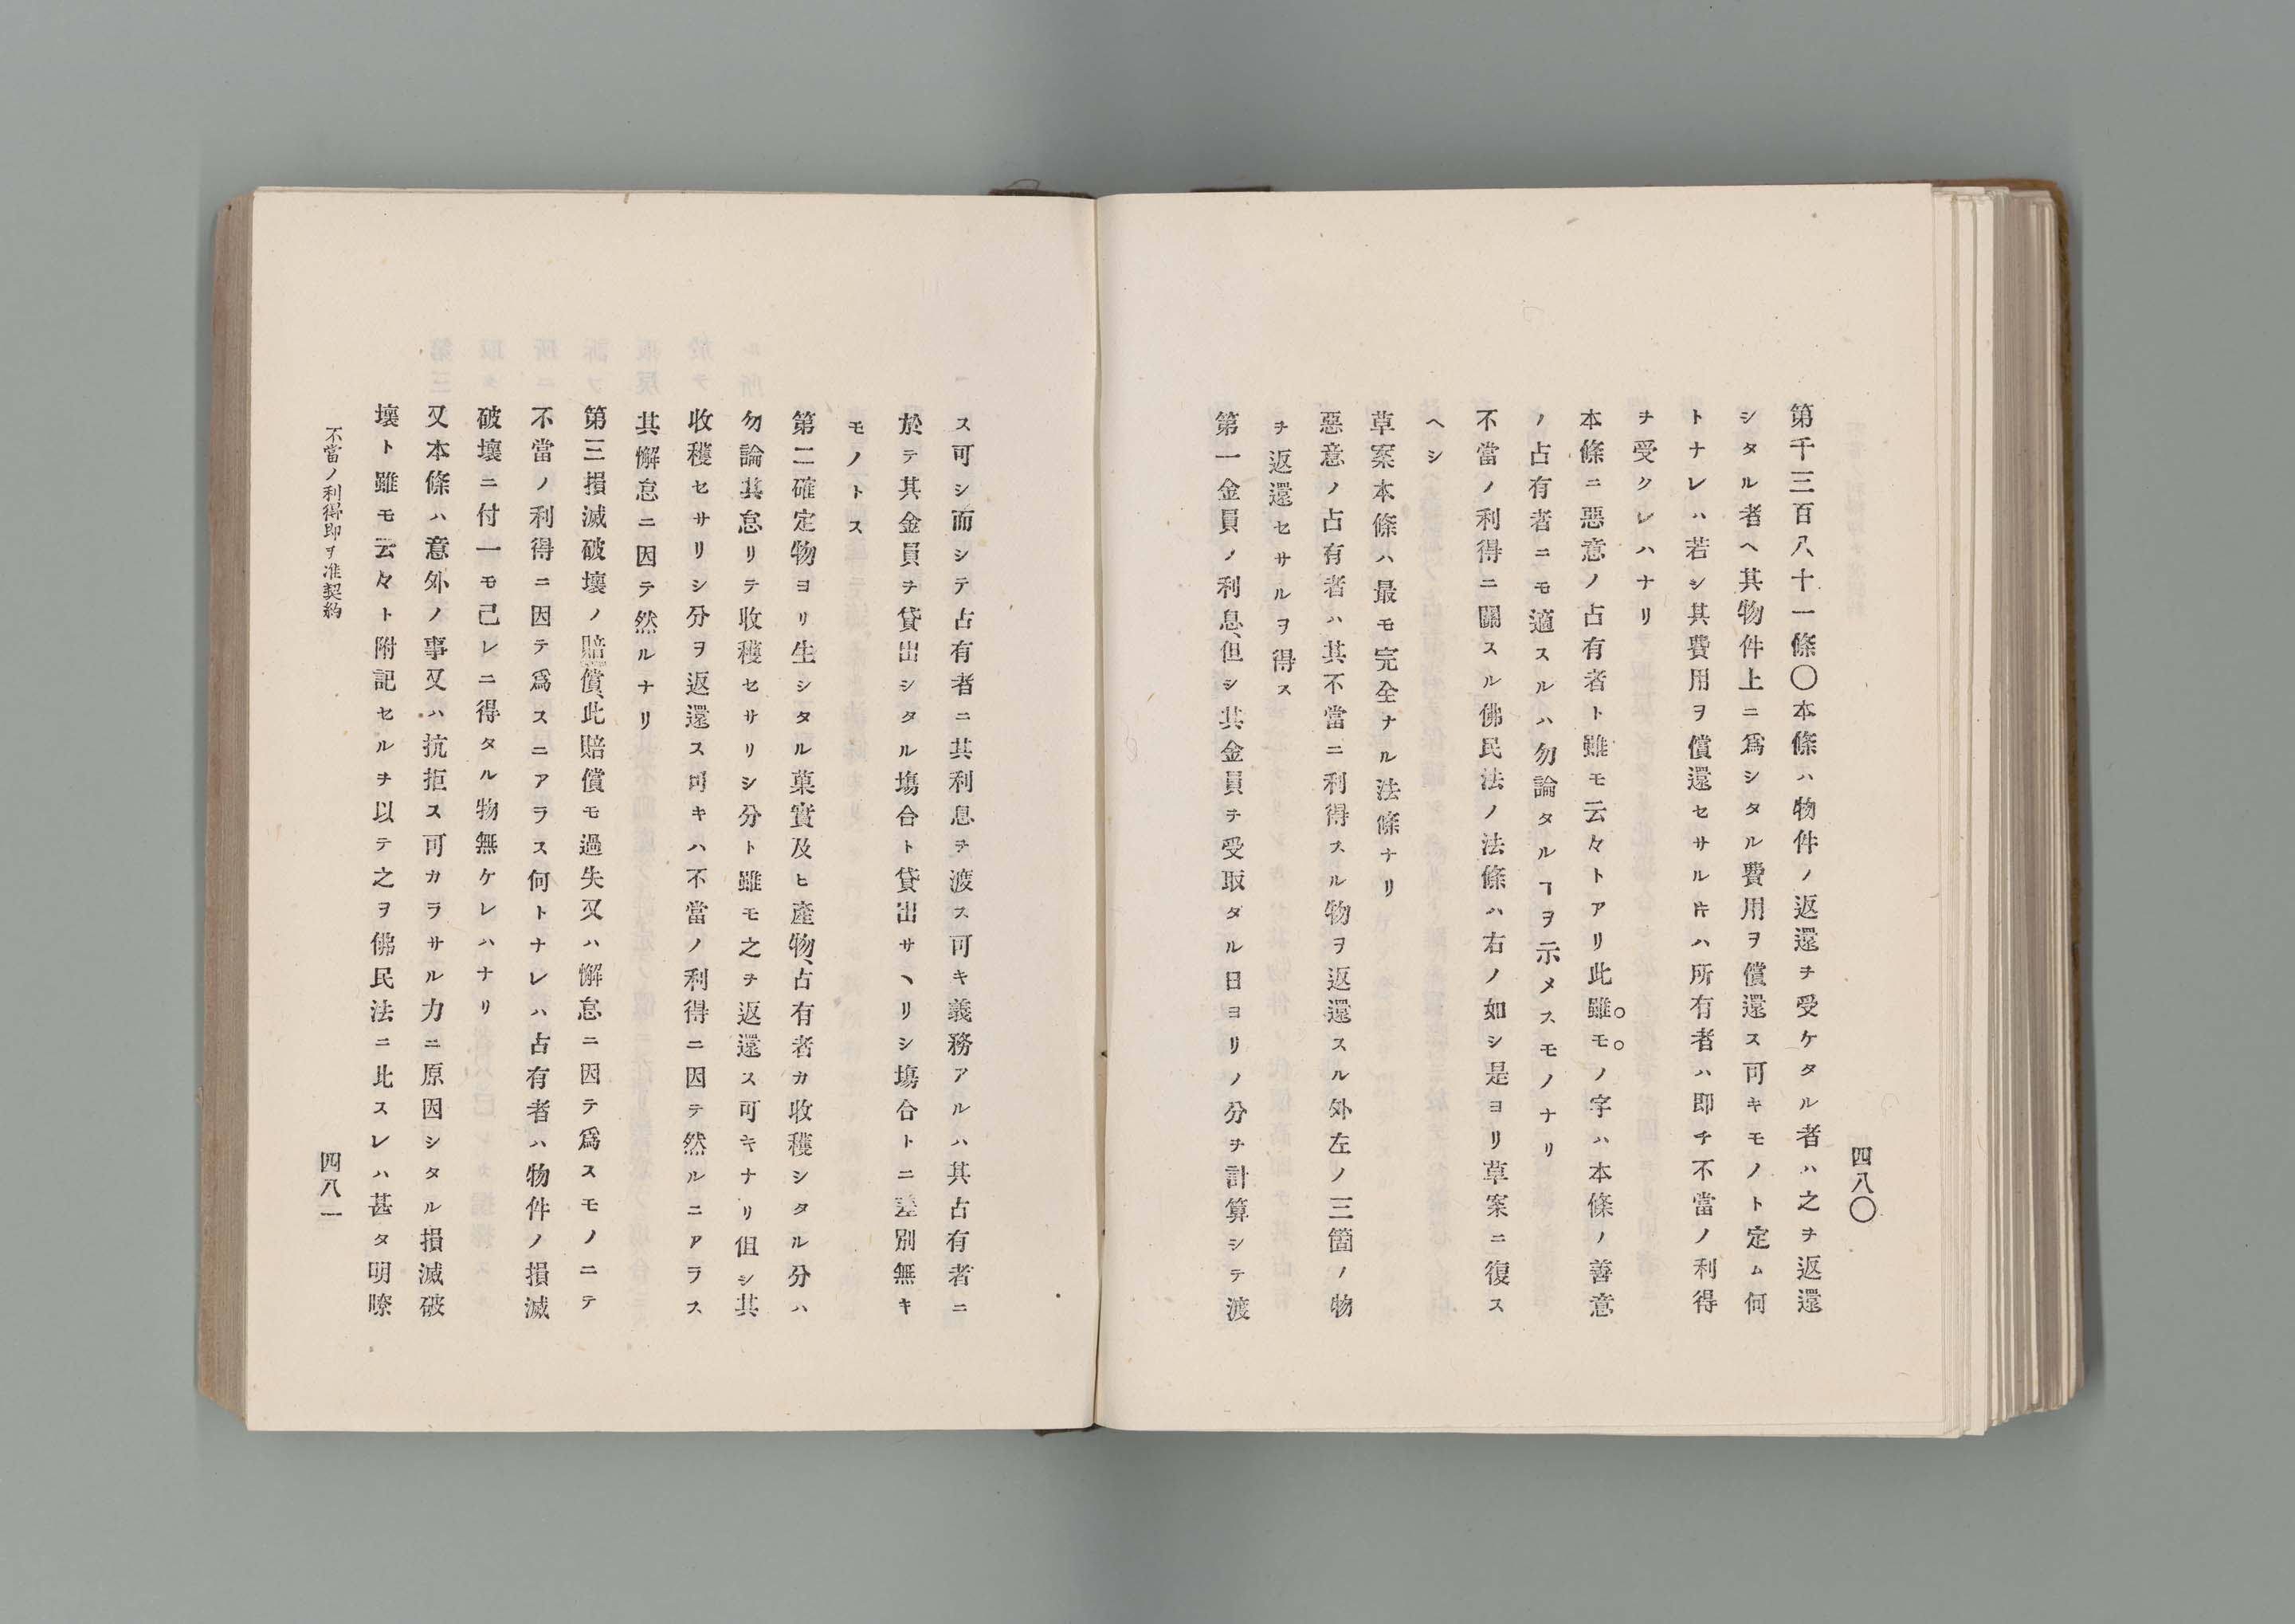 四八〇
第千三百八十一條〇本條ハ物件ノ返還ヲ受ケタル者ハ之ヲ返還
シタル者ヘ其物件上ニ爲シタル費用ヲ償還ス可キモノト定ム何
トナレハ若シ其費用ヲ償還セサル𪜈ハ所有者ハ即チ不當ノ利得
ヲ受クレハナリ
本條ニ惡意ノ占有者ト雖モ云々トアリ此雖モノ字ハ本條ノ善意
ノ占有者ニモ適スルハ勿論タルヿヲ示メスモノナリ
不當ノ利得ニ關スル佛民法ノ法條ハ右ノ如シ是ヨリ草案ニ復ス
ヘシ
草案本條ハ最モ完全ナル法條ナリ
惡意ノ占有者ハ其不當ニ利得スル物ヲ返還スル外左ノ三箇ノ物
ヲ返還セサルヲ得ス
第一金員ノ利息、但シ其金員ヲ受取タル日ヨリノ分ヲ計算シテ渡
ス可シ而シテ占有者ニ其利息ヲ渡ス可キ義務アルハ其占有者ニ
於テ其金員ヲ貸出シタル塲合ト貸出サヽリシ塲合トニ差別無キ
モノトス
第二確定物ヨリ生シタル菓實及ヒ產物、占有者カ收穫シタル分ハ
勿論其怠リテ收穫セサリシ分ト雖モ之ヲ返還ス可キナリ但シ其
收穫セサリシ分ヲ返還ス可キハ不當ノ利得ニ因テ然ルニアラス
其懈怠ニ因テ然ルナリ
第三損滅破壞ノ賠償、此賠償モ過失又ハ懈怠ニ因テ爲スモノニテ
不當ノ利得ニ因テ爲スニアラス何トナレハ占有者ハ物件ノ損滅
破壞ニ付一モ己レニ得タル物無ケレハナリ
又本條ハ意外ノ事又ハ抗拒ス可カラサル力ニ原因シタル損滅破
壞ト雖モ云々ト附記セルヲ以テ之ヲ佛民法ニ比スレハ甚タ明瞭
不當ノ利得即ヲ准契約
四八一